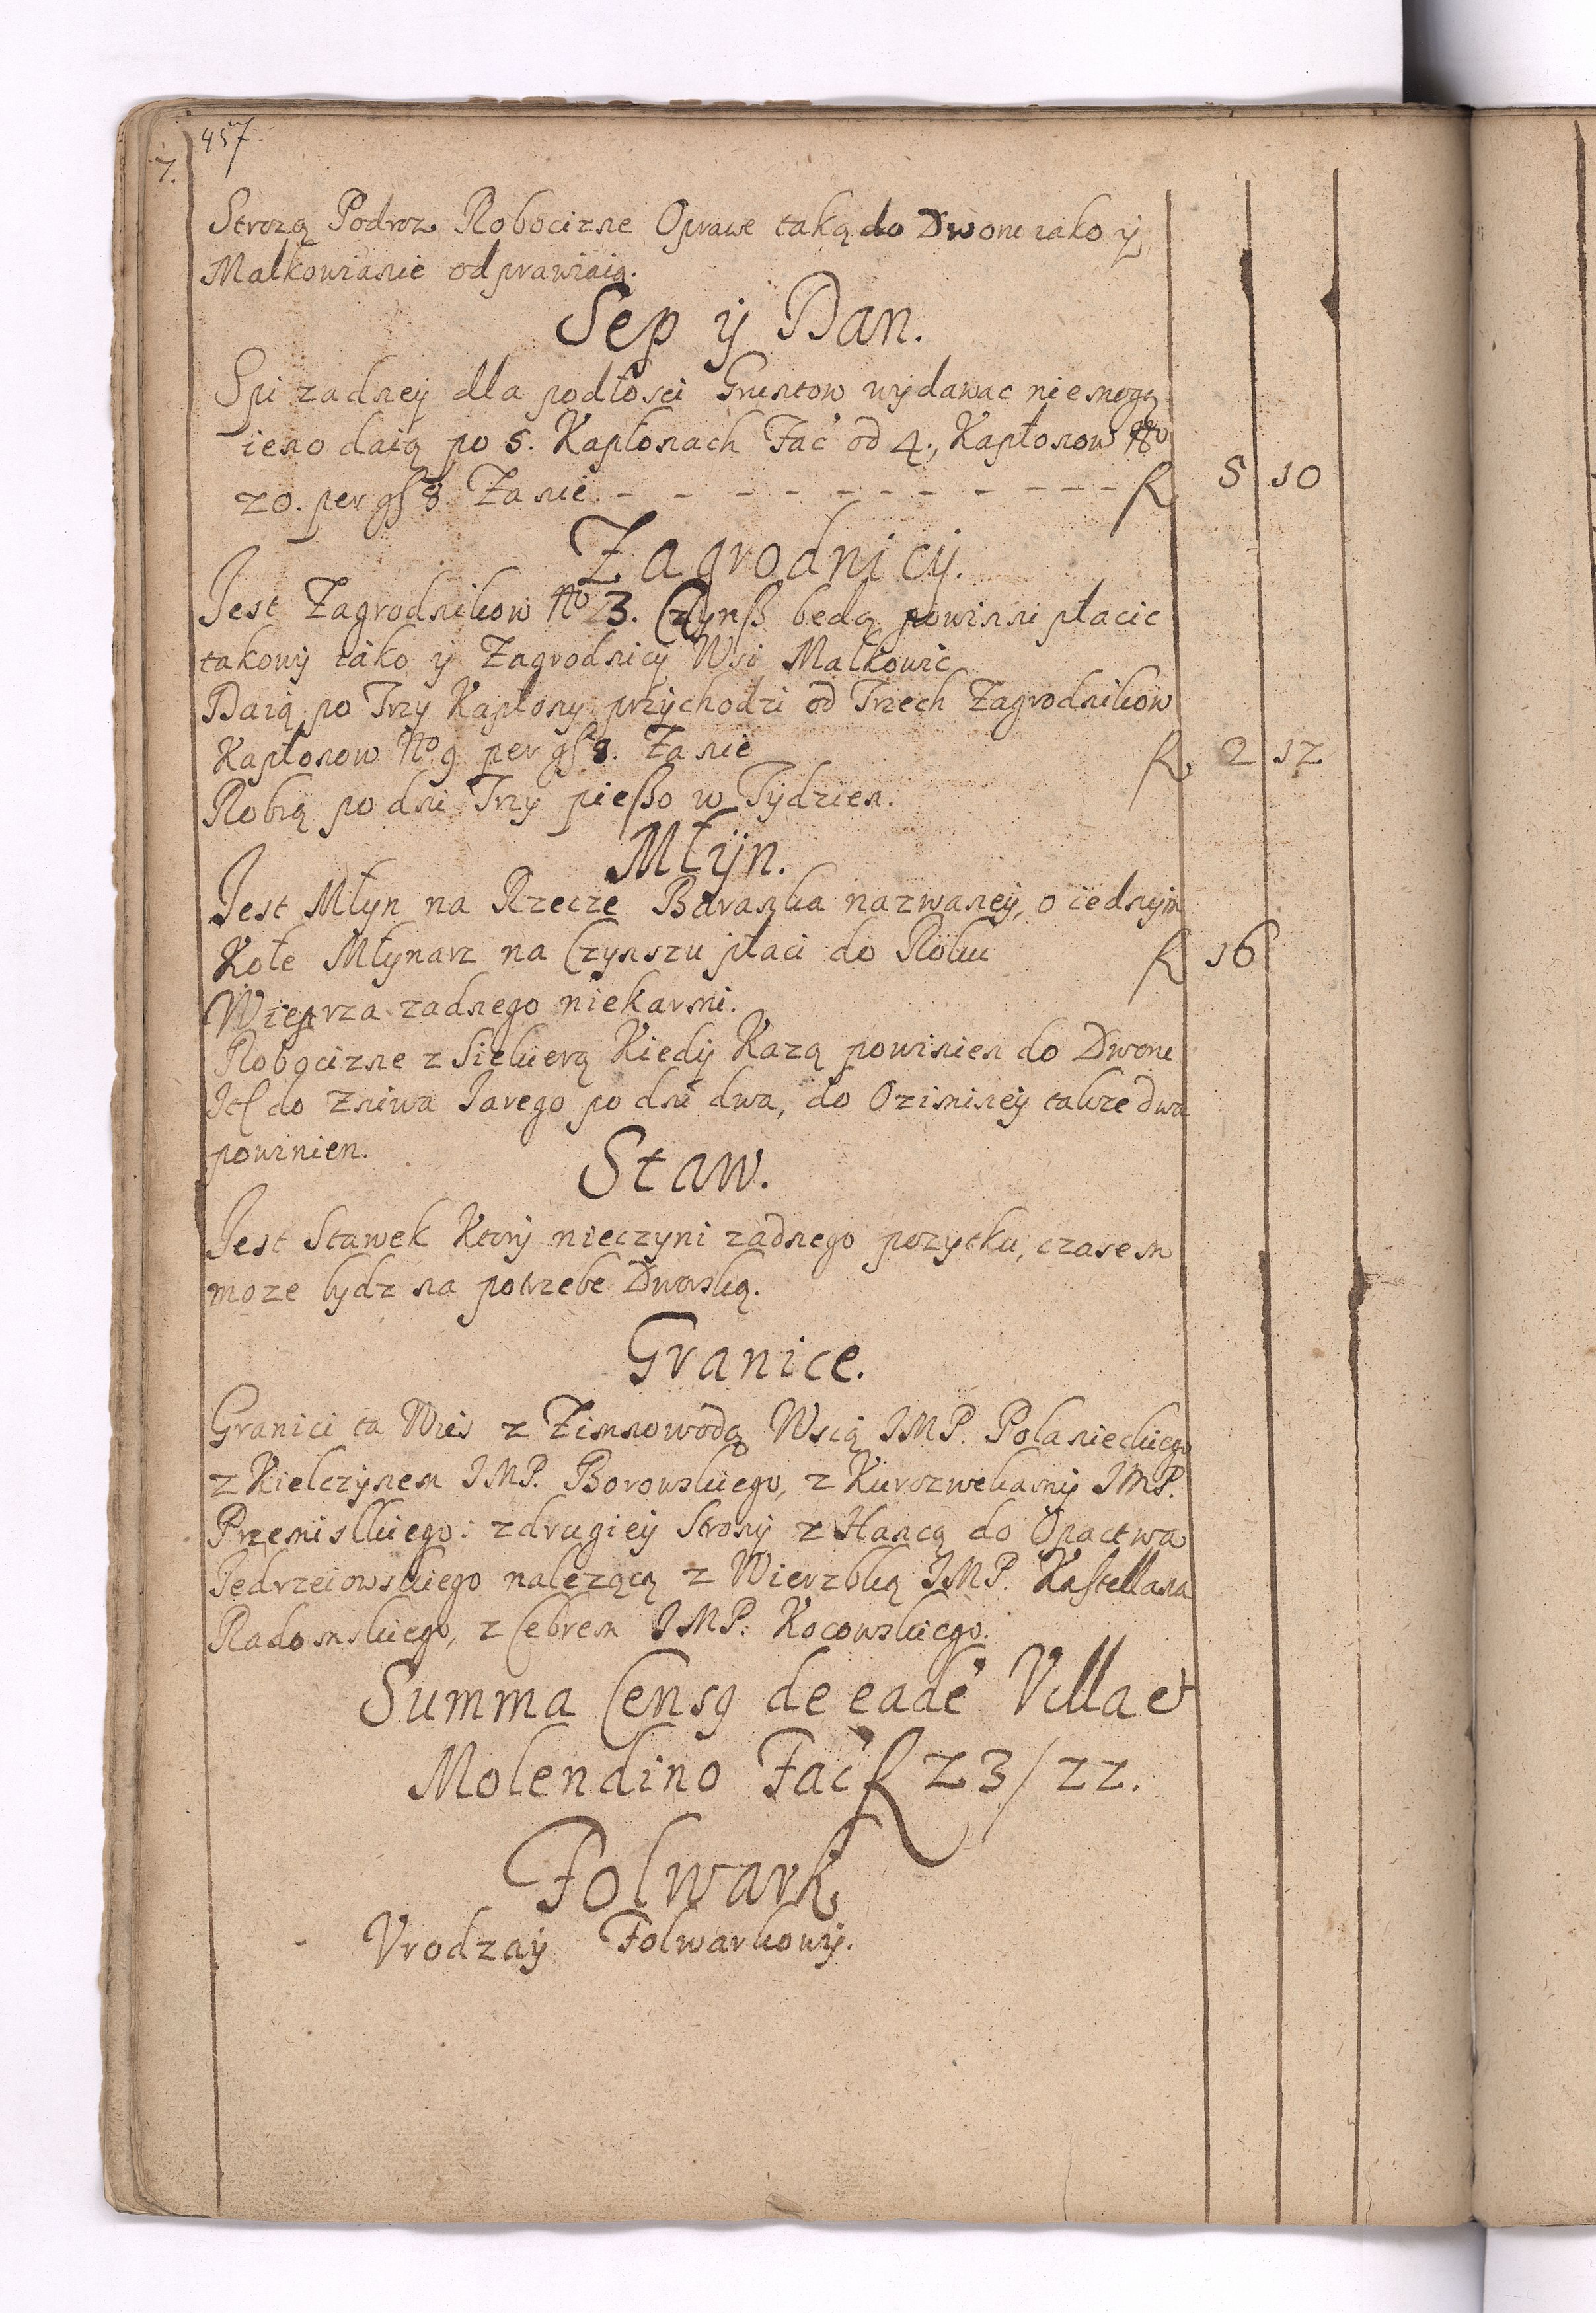 457
7.
Strozą Podroz Robocizne Oprawe taką do Dworu iako y
Malkowianie odprawiaią.
Sep ÿ Dan.
Spi zadneÿ dla podłosci Gruntow wydawac niemogą
ieno daią po 5. Kapłonach Fac̃ od 4., Kapłonow No
20. per gß 8. Zanie - - - - - - - - - - - f 5 10
Zagrodnicÿ.
Jest Zagrodnikow No 3. Czynß bedą powinni płacic
takowÿ iako y Zagrodnicÿ Wsi Malkowic
Daią po Trzy Kapłony przychodzi od Trzech Zagrodnikow
Kapłonow No 9 per gß 8. Zanie f 2 12
Robią po dni Trzÿ pießo w Tÿdzien.
Młÿn.
Jest Młyn na Rzecze Baraszka nazwaneÿ, o iednÿm
Kole Młynarz na Czynszu płaci do Roku f 16
Wieprza zadnego niekarmi.
Robocizne z Siekierą Kiedÿ Kazą powinien do Dworu
It do Zniwa Iarego po dni dwa, do Ozimineÿ takze dwa
powinien.
Staw.
Jest Stawek Ktorÿ nieczyni zadnego pozytku, czasem
moze bydz na potrzebe Dworską.
Granice.
Granici ta Wies z Zimnowodą Wsią IMP. Polanieckiego
z Kielczynem IMP. Borowskiego, z Kurozwekamÿ IMP.
Przemislkiego: z drugieÿ Stronÿ z Hancą do Opactwa
Jedrzeiowskiego nalezącą z Wierzbką IMP. Kasztellana
Radomskiego, z Cebrem IMP. Kocowskiego.
Summa Censꝯ de eadē Villa et
Molendino Fac̃ f 23/22.
Folwark
Vrodzaÿ Folwarkowÿ.